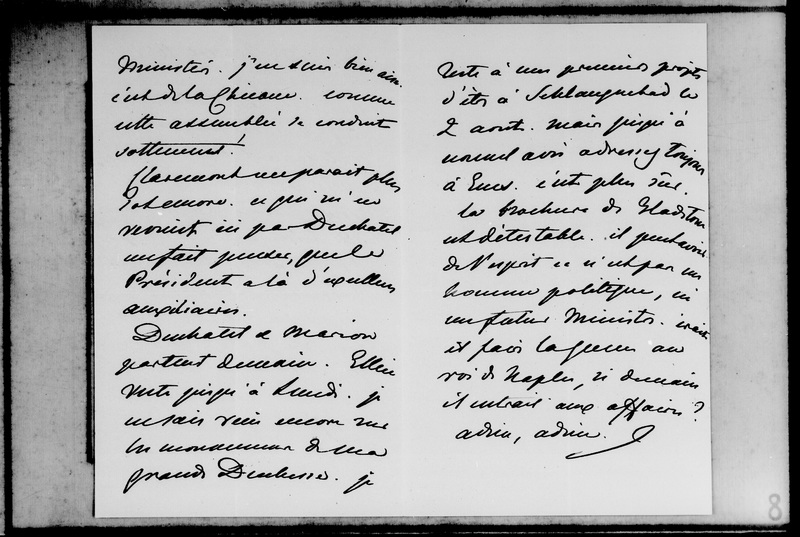 Ministère. j'en suis bien aise.
c'est de la Chicane. comme
cette assemblée se conduit
sottement!
Claremont me parait plus
sot encore. ce qui m'en
revient ici par Duchatel
me fait penser, que le
Président a là d'excellens
auxiliaires.
Duchatel & Marion
partent demain. Ellice
reste jusqu'à Lundi. je
ne sais rien encore sur
les mouvemens de ma
grande Duchesse. je
reste à mes premiers projets
d'être à Schlangenbad le
2 aout. mais jusqu'à
nouvel avis adressez toujours
à Ems. c'est plus sûr.
la brochure de Gladstone
est détestable. il peut avoir
de l'esprit ce n'est pas un
homme politique, ni
un futur Ministre. irait
il faire la guerre au
roi de Naples, si demain
il entrait aux affaires?
adieu, adieu.
8